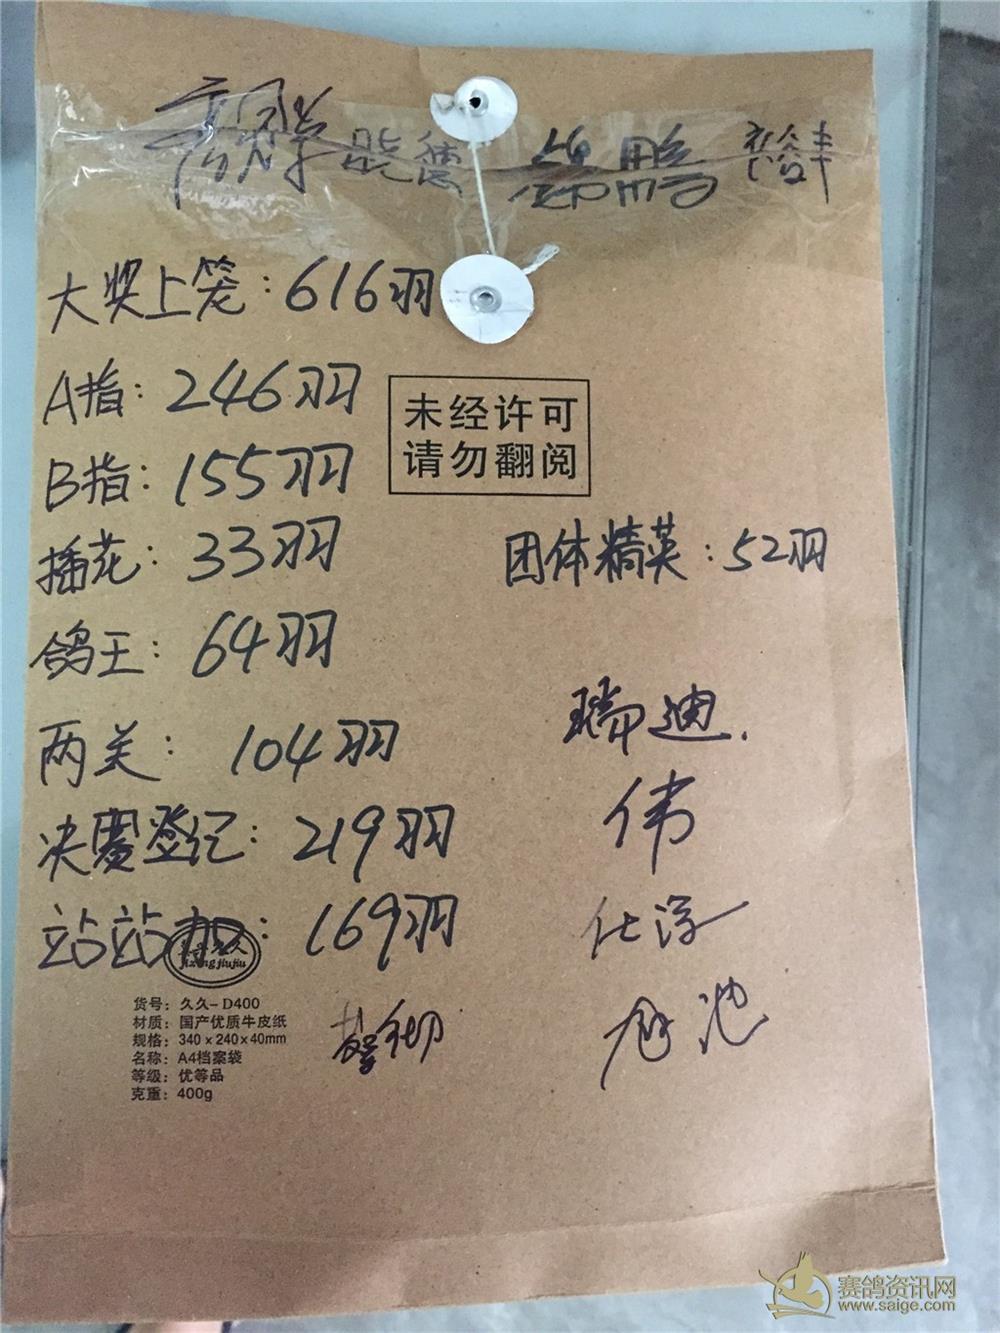 能德 鹏 裕丰
大奖上笼：616羽
A指：246羽
未经许可
请勿翻阅
B指：155羽
插花：33羽
团体精英：52羽
鸽王：64羽
瑞迪.
两关：104羽
伟
决赛登记：219羽
站站加：169羽
jizong jiujiu
货号：久久-D400
材质：国产优质牛皮纸
规格：340×240×40mm
名称：A4档案袋
等级：优等品
克重：400g
赛鸽资讯网
www.saige.com